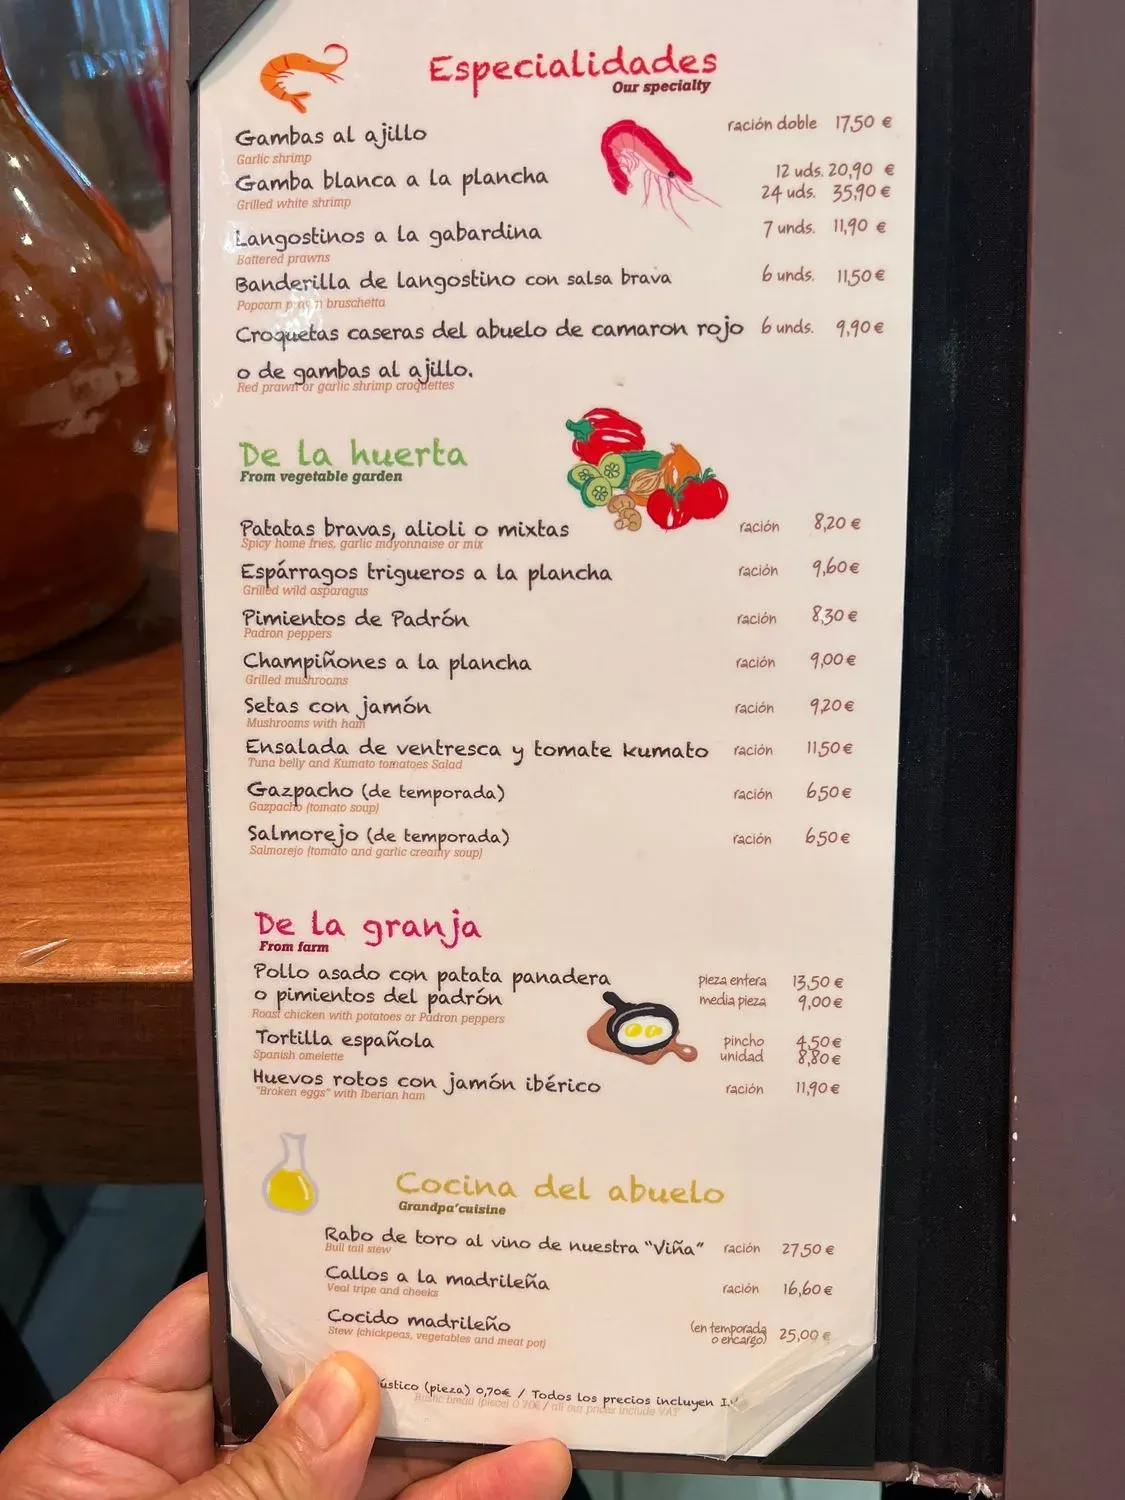 Especialidades
Our specialty
Gambas al ajillo ración doble 17,50 €
Garlic shrimp
Gamba blanca a la plancha 12 uds. 20,90 €
Grilled white shrimp 24 uds. 35,90 €
Langostinos a la gabardina 7 unds. 11,90 €
Battered prawns
Banderilla de langostino con salsa brava 6 unds. 11,50 €
Popcorn prawn bruschetta
Croquetas caseras del abuelo de camaron rojo 6 unds. 9,90 €
o de gambas al ajillo.
Red prawn or garlic shrimp croquettes
De la huerta
From vegetable garden
Patatas bravas, alioli o mixtas ración 8,20 €
Spicy home fries, garlic mayonnaise or mix
Espárragos trigueros a la plancha ración 9,60 €
Grilled wild asparagus
Pimientos de Padrón ración 8,30 €
Padron peppers
Champiñones a la plancha ración 9,00 €
Grilled mushrooms
Setas con jamón ración 9,20 €
Mushrooms with ham
Ensalada de ventresca y tomate kumato ración 11,50 €
Tuna belly and Kumato tomatoes Salad
Gazpacho (de temporada) ración 6,50 €
Gazpacho (tomato soup)
Salmorejo (de temporada) ración 6,50 €
Salmorejo (tomato and garlic creamy soup)
De la granja
From farm
Pollo asado con patata panadera pieza entera 13,50 €
o pimientos del padrón media pieza 9,00 €
Roast chicken with potatoes or Padron peppers
Tortilla española pincho 4,50 €
Spanish omelette unidad 8,80 €
Huevos rotos con jamón ibérico ración 11,90 €
"Broken eggs" with Iberian ham
Cocina del abuelo
Grandpa'cuisine
Rabo de toro al vino de nuestra "Viña" ración 27,50 €
Bull tail stew
Callos a la madrileña ración 16,60 €
Veal tripe and cheeks
Cocido madrileño (en temporada
o encargo) 25,00 €
Stew (chickpeas, vegetables and meat pot)
ústico (pieza) 0,70€ / Todos los precios incluyen
Rustic bread (piece) 0.70€ / all our prices include VAT